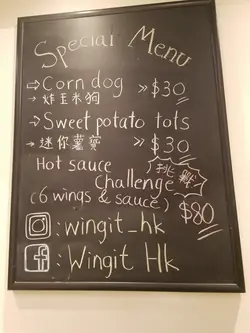 Special Menu
⇒ Corn dog » $30
⇒ 炸玉米狗
⇒ Sweet potato tots
⇒ 迷你薯寶 » $30
Hot sauce
Challenge 挑戰
(6 wings & sauce) $80
: wingit_hk
: Wingit Hk